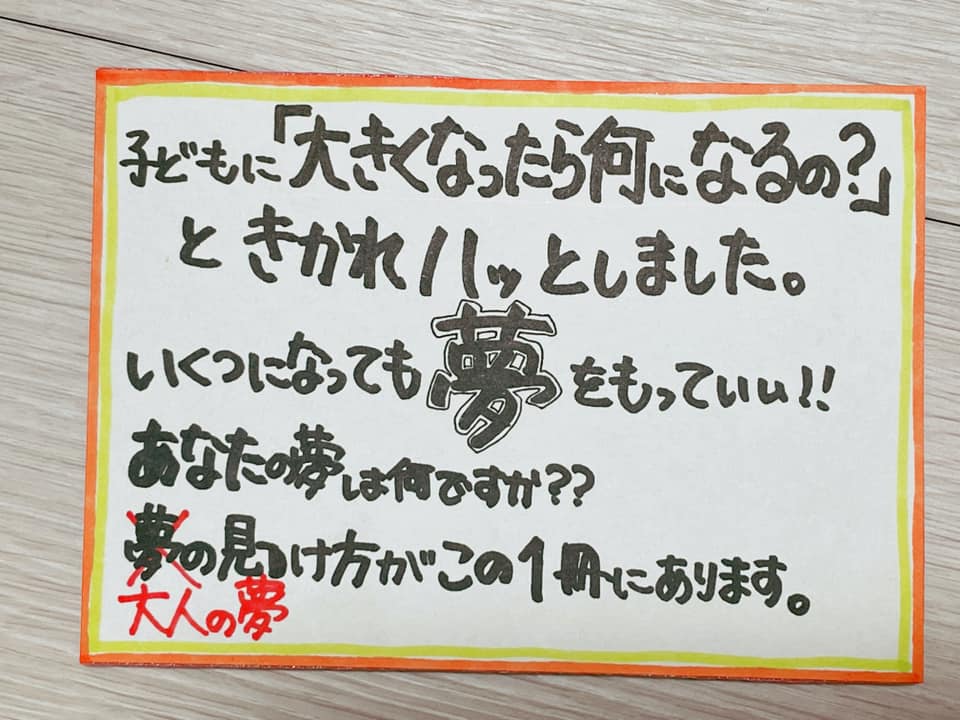 子どもに「大きくなったら何になるの?」
ときかれハッとしました。
いくつになっても夢をもっていい!!
あなたの夢は何ですか??
夢の見つけ方がこの1冊にあります。
大人の夢